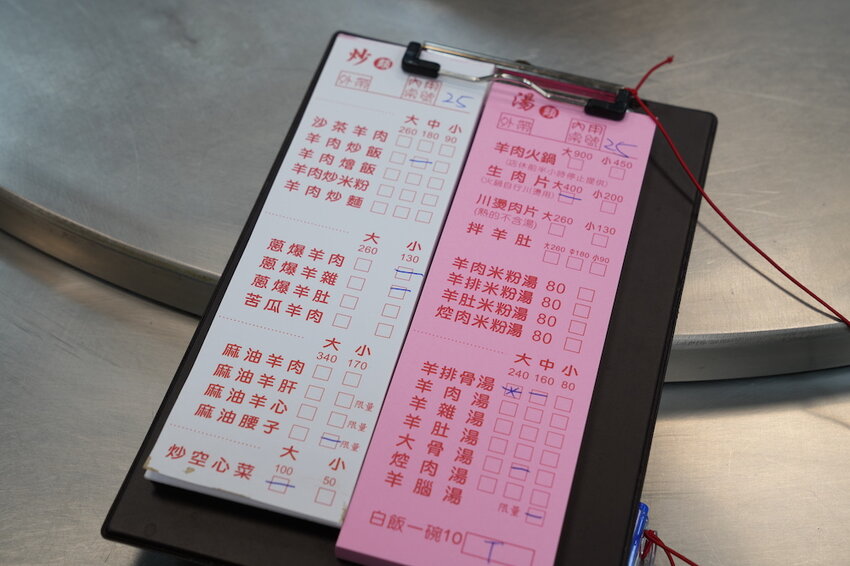 炒類
外帶 內用桌號 25
大 中 小
260 180 90
沙茶羊肉
羊肉炒飯
羊肉燴飯
羊肉炒米粉
羊肉炒麵
大 小
260 130
蔥爆羊肉
蔥爆羊雜
蔥爆羊肚
苦瓜羊肉
大 小
340 170
麻油羊肉
麻油羊肝 限量
麻油羊心 限量
麻油腰子 限量
大 小
100 50
炒空心菜
湯類
外帶 內用桌號 25
羊肉火鍋 大900 小450
(店休前半小時停止提供)
生肉片 大400 小200
(火鍋自行川燙用)
川燙肉片 大260 小130
(熟的不含湯)
拌羊肚 大260 中180 小90
羊肉米粉湯 80
羊排米粉湯 80
羊肚米粉湯 80
焢肉米粉湯 80
大 中 小
240 160 80
羊排骨湯
羊肉湯
羊雜湯
羊肚湯
大骨湯
焢肉湯
羊腦湯 限量
白飯一碗10 T